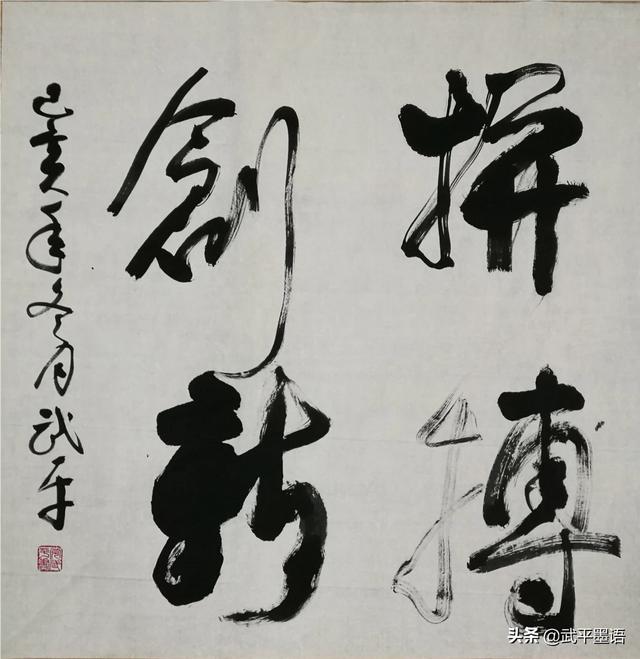 拼搏
創新
己亥年冬月武平
头条 @武平墨语